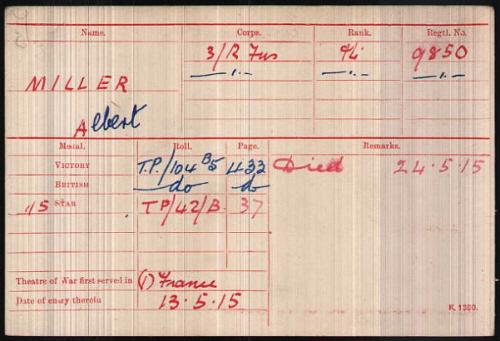 Name. Corps. Rank. Regtl. No.
3/R Fus 9850
MILLER —"— —"— —"—
Albert
Medal. Roll. Page. Remarks.
VICTORY T.P./104 B5 433 Died 24.5.15
BRITISH do do
15 STAR TP/42/B. 37
Theatre of War first served in (1) France
Date of entry therein 13.5.15
K. 1380.